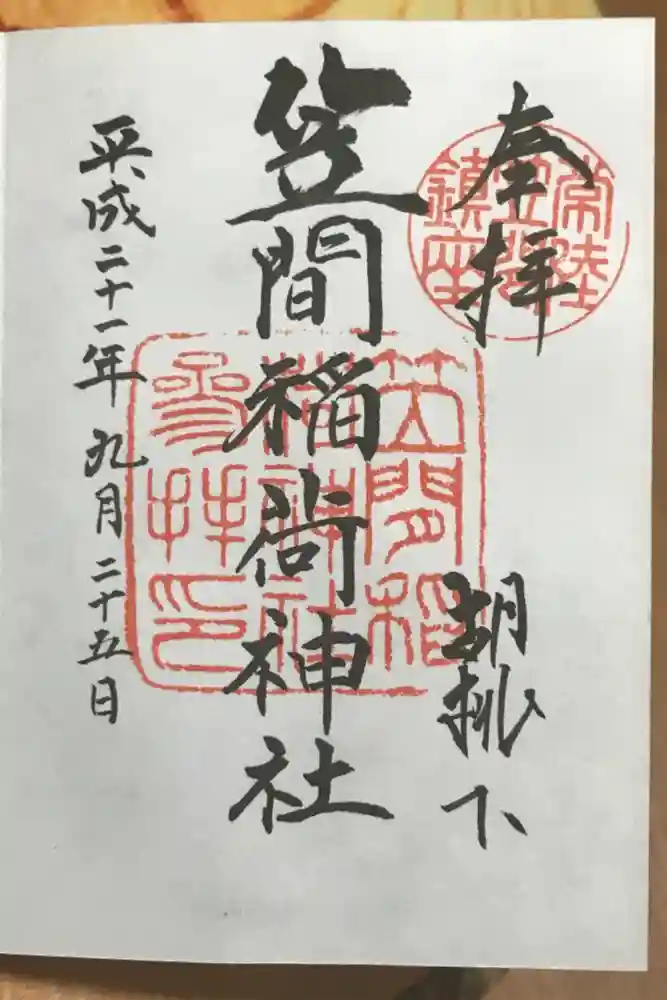 奉拝
常陸
笠間
鎮座
胡桃下
笠間稲荷神社
笠間稲
荷神社
参拝印
平成二十一年九月二十五日